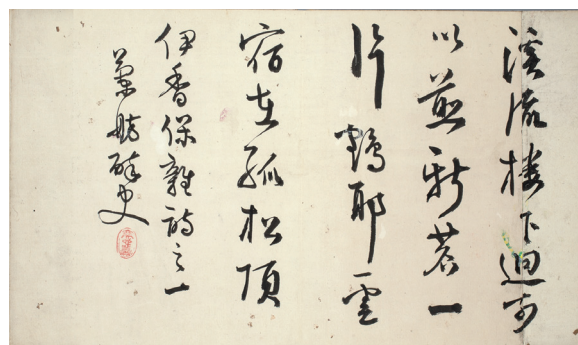 溪流楼下迴可
以煎新茗一
片鶴耶雲
宿在孤松頂
伊香保雜詩之一
醉史